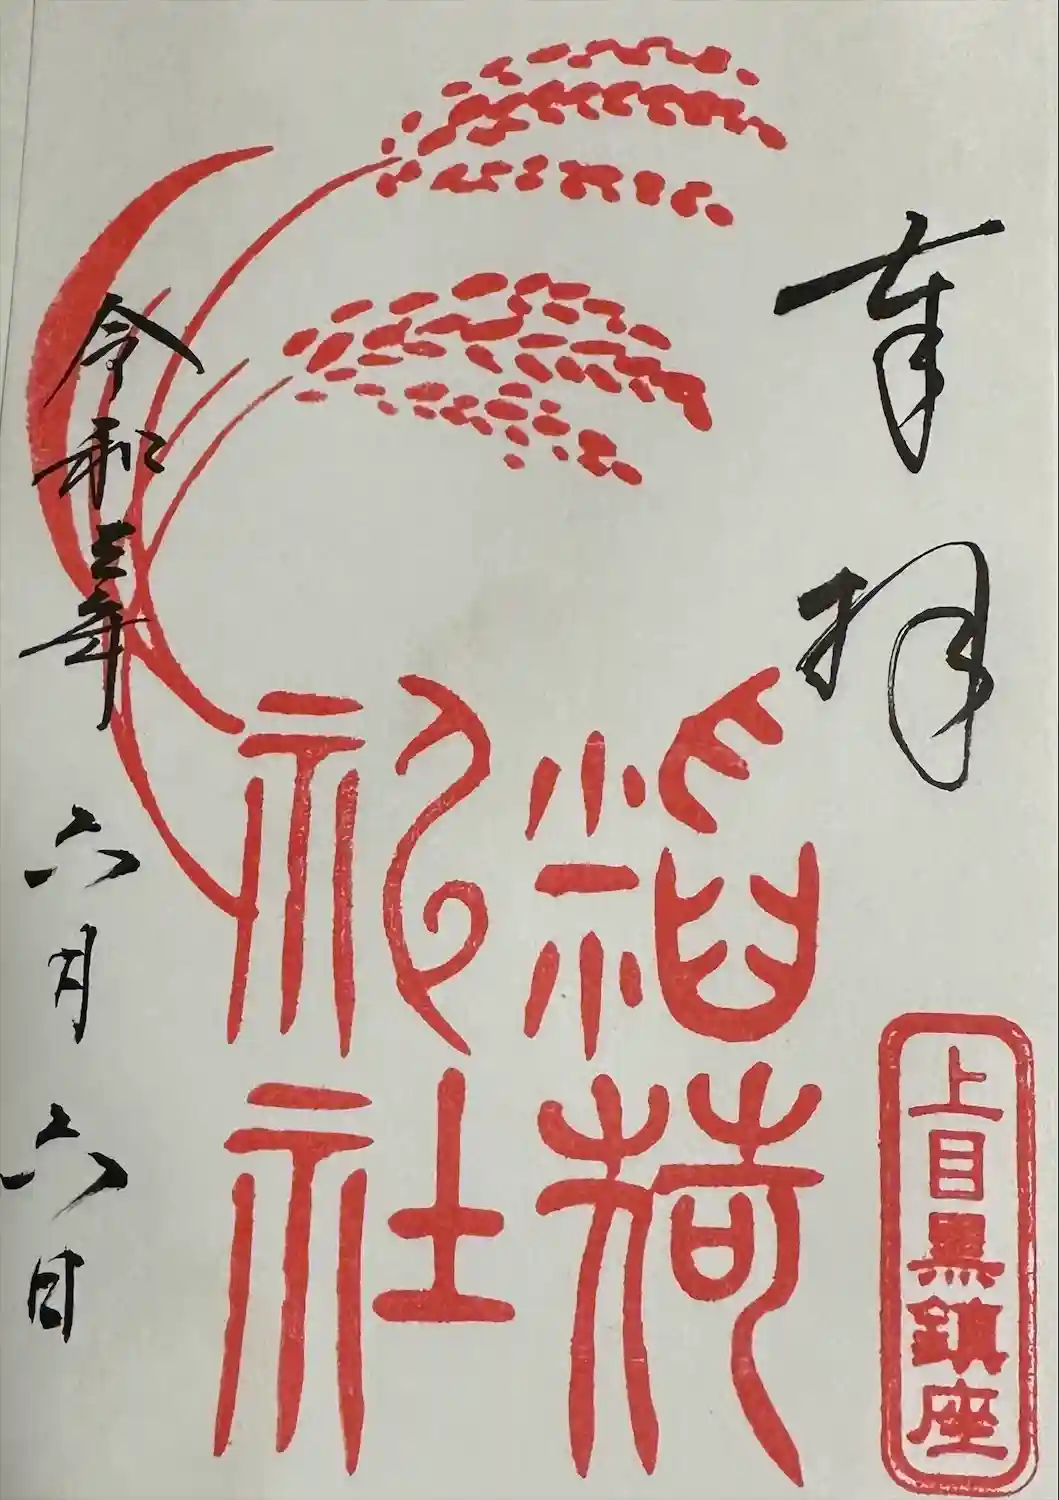 奉拝
上目黒鎮座
稲荷
神社
令和三年六月六日